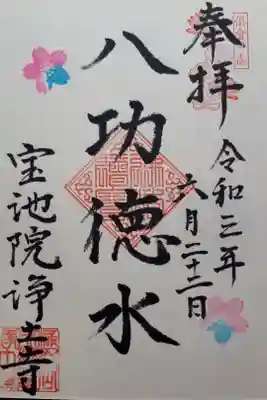 奉拝
令和三年
六月二十二日
八功徳水
宝池院
浄土寺